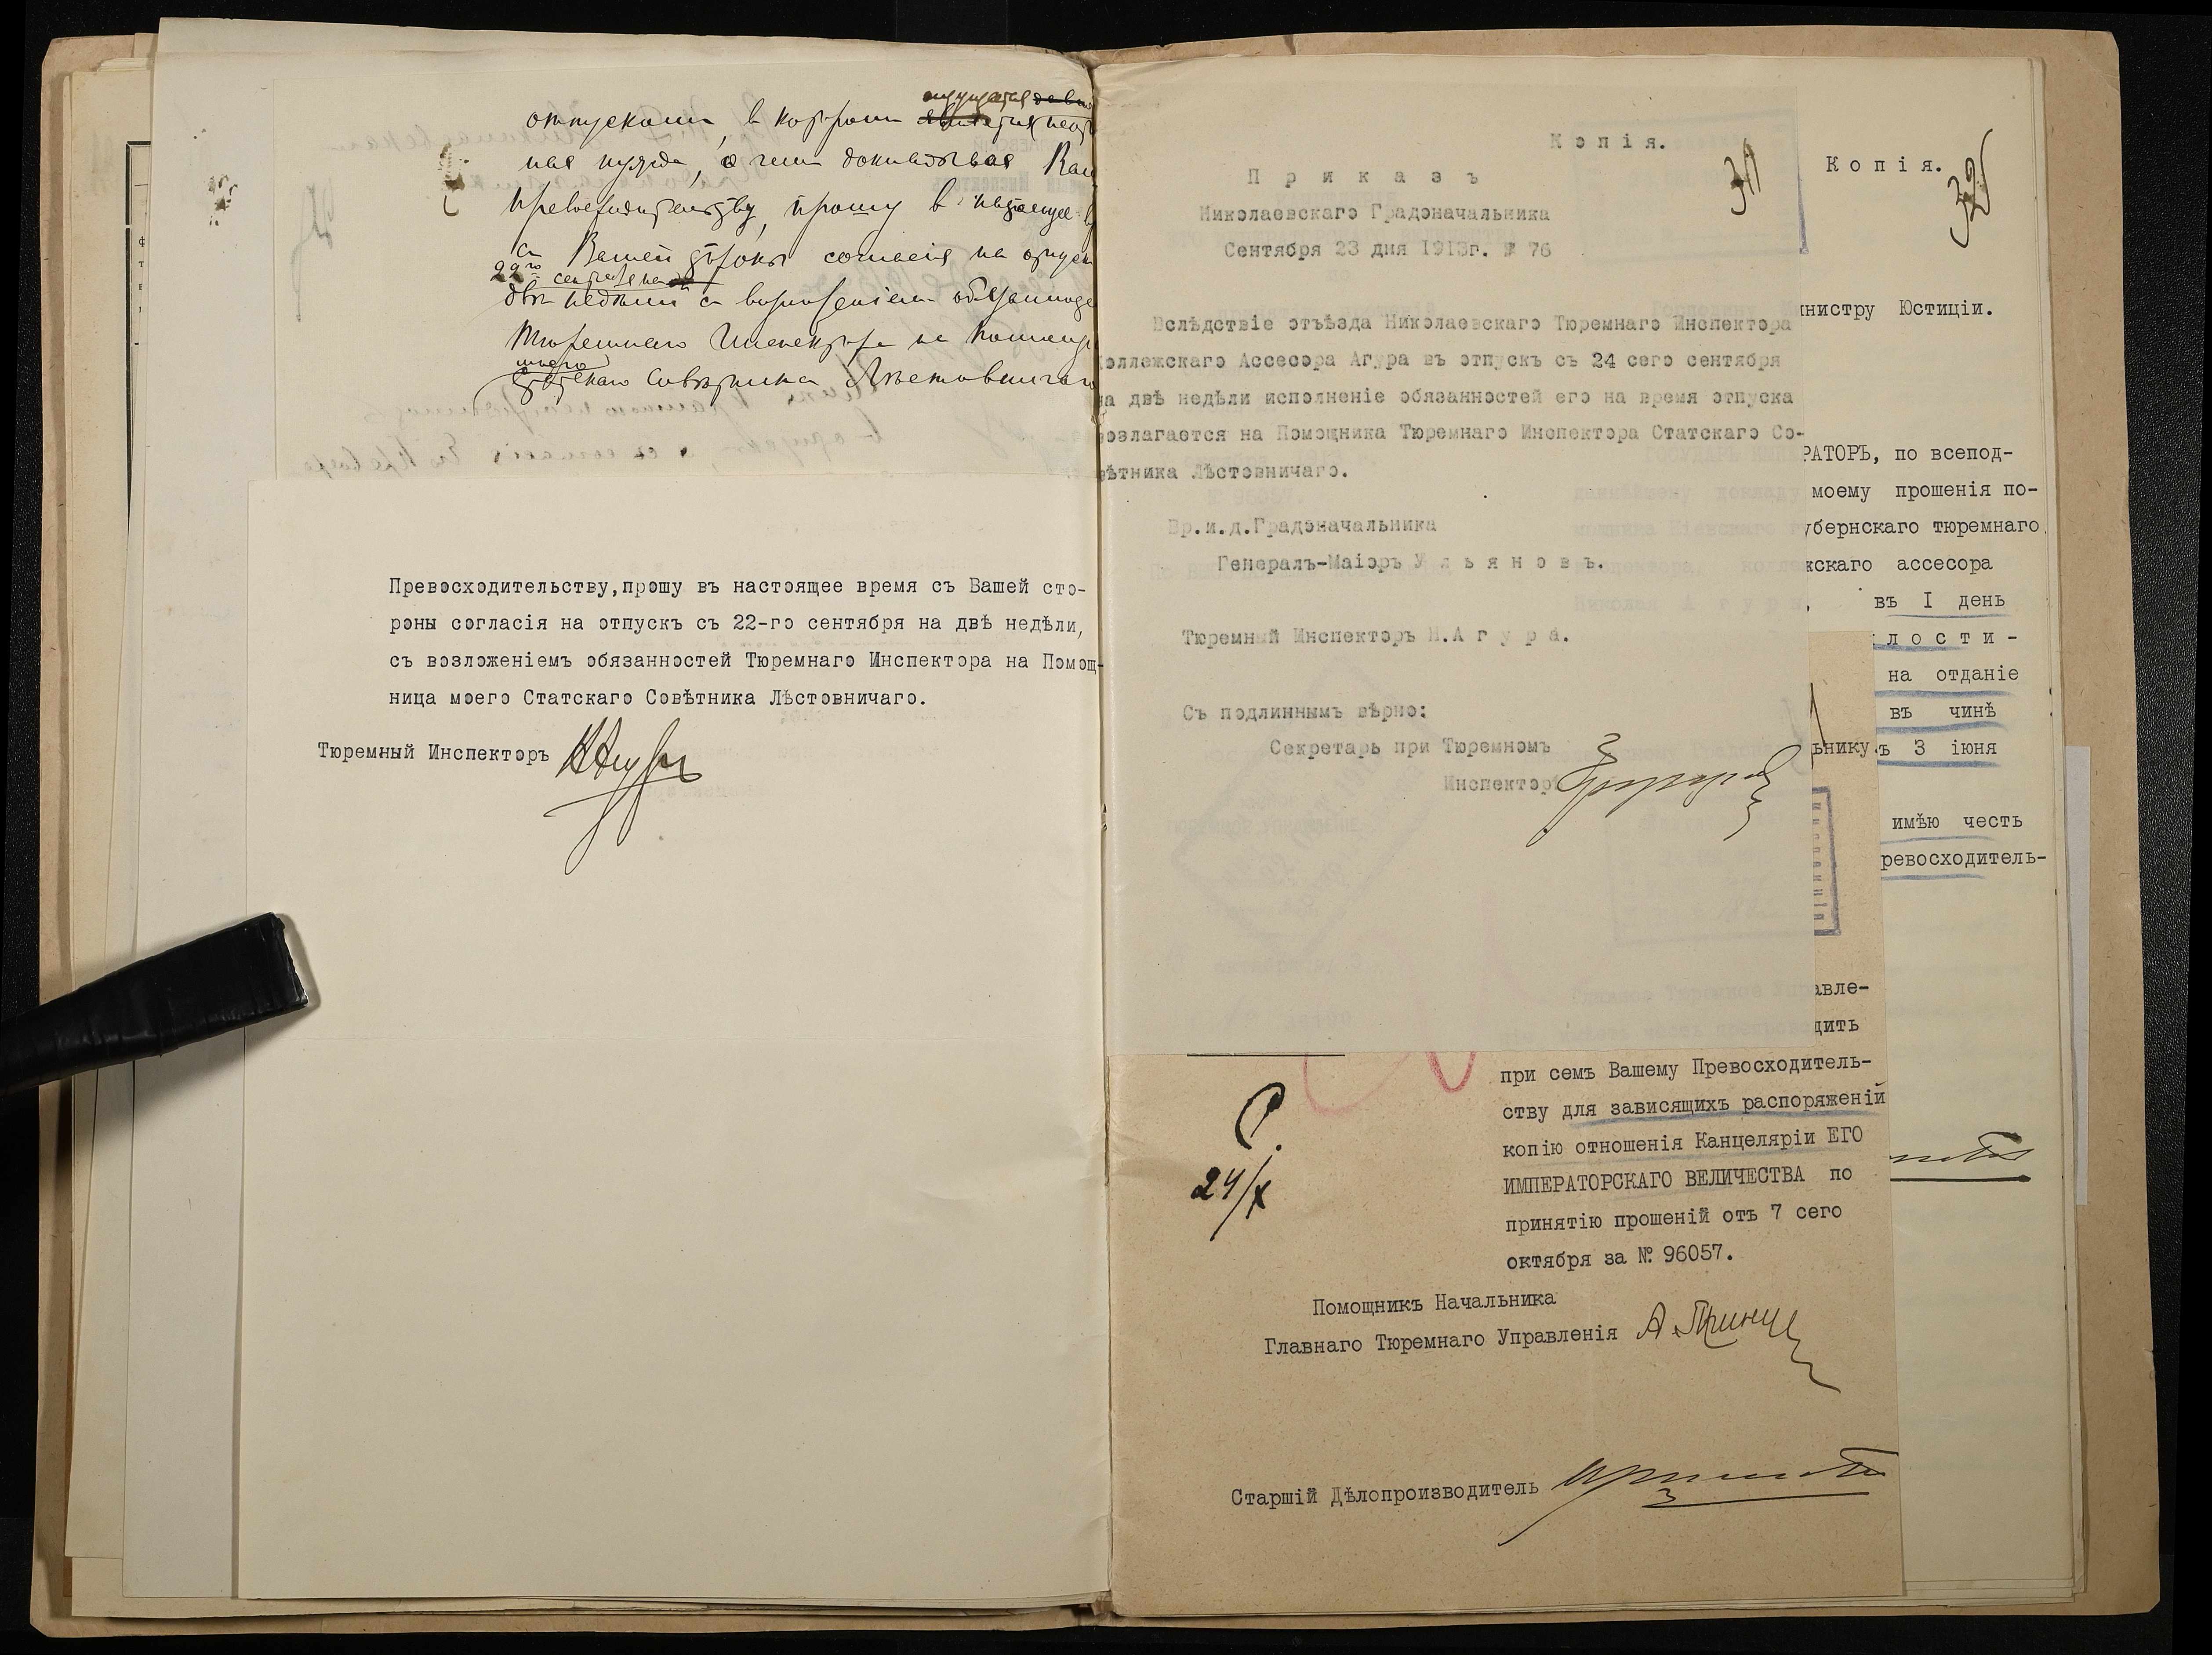 отпускомъ, в которомъ ощущается
ная нужда, о чемъ докладывая
Превосходительству, прошу в настоящее
съ Вашей стороны согласія на отпускъ
22го сентября на
двѣ недѣли съ возложеніемъ
Тюремнаго Инспектора на
моего
Статскаго Совѣтника Лѣстовничаго
Превосходительству,прошу въ настоящее время съ Вашей сто-
роны согласія на отпускъ съ 22-го сентября на двѣ недѣли,
съ возложеніемъ обязанностей Тюремнаго Инспектора на Помощ-
ница моего Статскаго Совѣтника Лѣстовничаго.
Тюремный Инспекторъ
Копія.
31
Приказъ
Николаевскаго Градоначальника
Сентября 23 дня 1913г. № 76
Вслѣдствіе отъѣзда Николаевскаго Тюремнаго Инспектора
Коллежскаго Ассесора Агура въ отпускъ съ 24 сего сентября
на двѣ недѣли исполненіе обязанностей его на время отпуска
возлагается на Помощника Тюремнаго Инспектора Статскаго Со-
вѣтника Лѣстовничаго.
Вр.и.д.Градоначальника
Генералъ-Маіоръ Ульяновъ.
Тюремный Инспекторъ Н.Агура.
Съ подлиннымъ вѣрно:
Секретарь при Тюремномъ
Инспекторѣ
при семъ Вашему Превосходитель-
ству для зависящихъ распоряженій
копію отношенія Канцеляріи ЕГО
ИМПЕРАТОРСКАГО ВЕЛИЧЕСТВА по
принятію прошеній отъ 7 сего
октября за № 96057.
24/X
Помощникъ Начальника
Главнаго Тюремнаго Управленія
Старшій Дѣлопроизводитель
Копія.
32
нистру Юстиціи.
РАТОРЪ, по всепод-
моему прошенія по-
убернскаго тюремнаго
жскаго ассесора
въ I день
лости-
на отданіе
въ чинѣ
ъ 3 іюня
имѣю честь
ревосходитель-